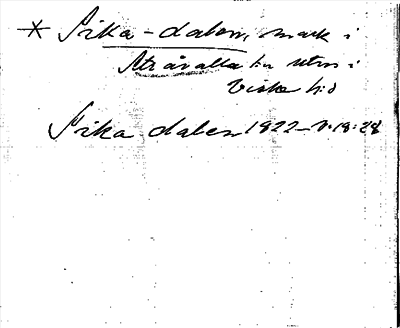 * Sika-dalen, mark i
Stråvalla sn utm i
Viske hd
Sika dalen 1822